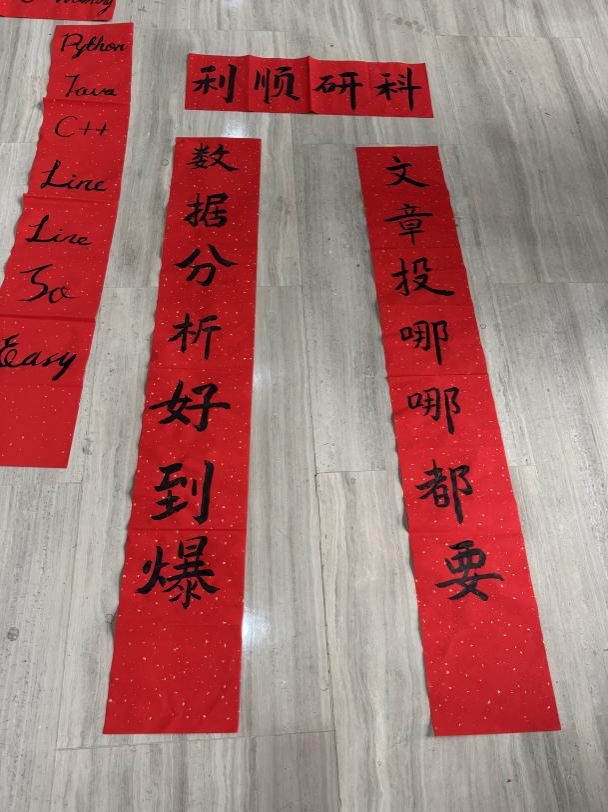 科研顺利
文章投哪哪都要
数据分析好到爆
Python
Java
C++
Line
Line
So
Easy